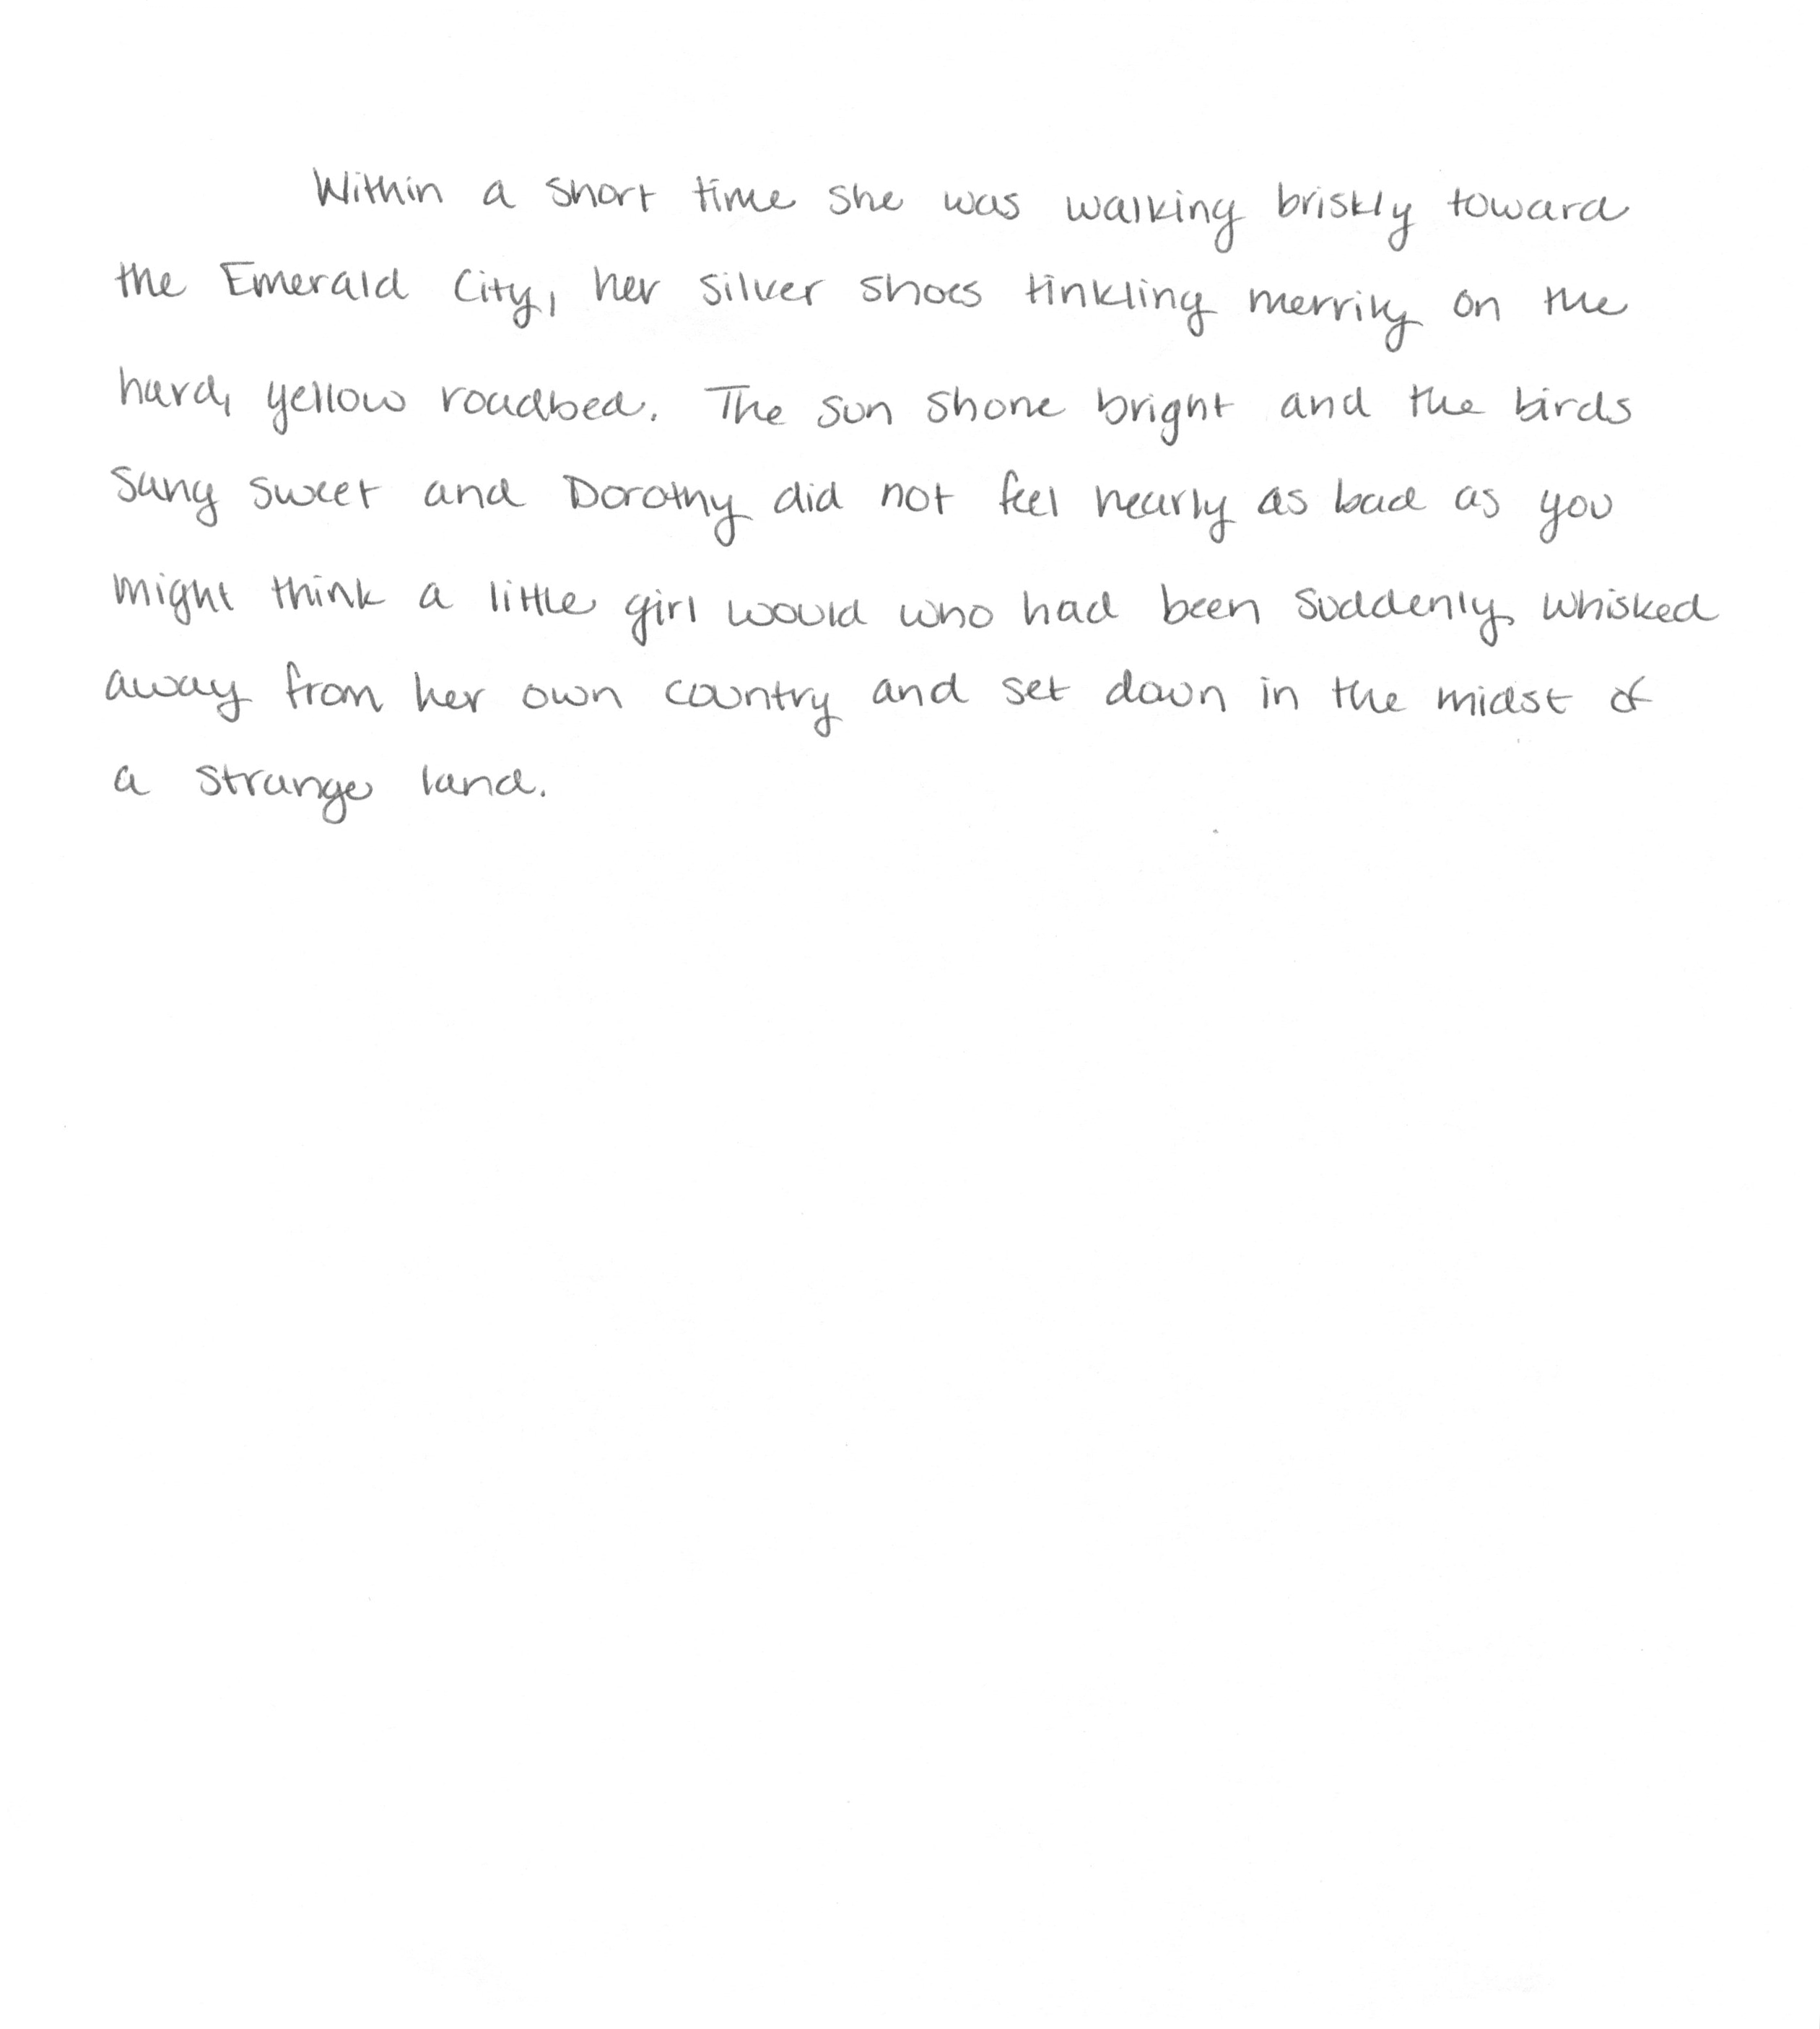 Within a short time she was walking briskly toward
the Emerald City, her silver shoes tinkling merrily on the
hard, yellow roadbed. The sun shone bright and the birds
sang sweet and Dorothy did not feel nearly as bad as you
might think a little girl would who had been suddenly whisked
away from her own country and set down in the midst of
a strange land.